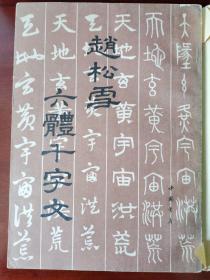 趙松雪
六體千字文
天地玄黃宇宙洪荒
天地玄黃宇宙洪荒
天地玄黃宇宙洪荒
天地玄黃宇宙洪荒
天地玄黃宇宙洪荒